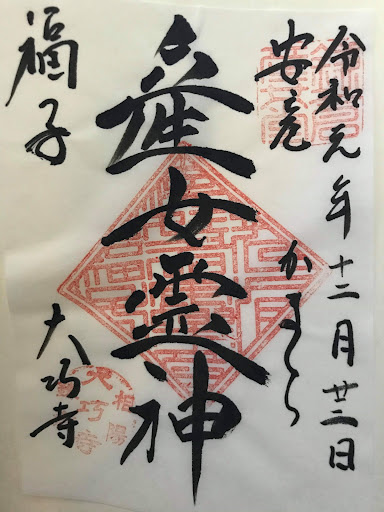 令和元年十二月廿二日
安産
かまくら
産女霊神
福子
大巧寺
相陽
大巧寺